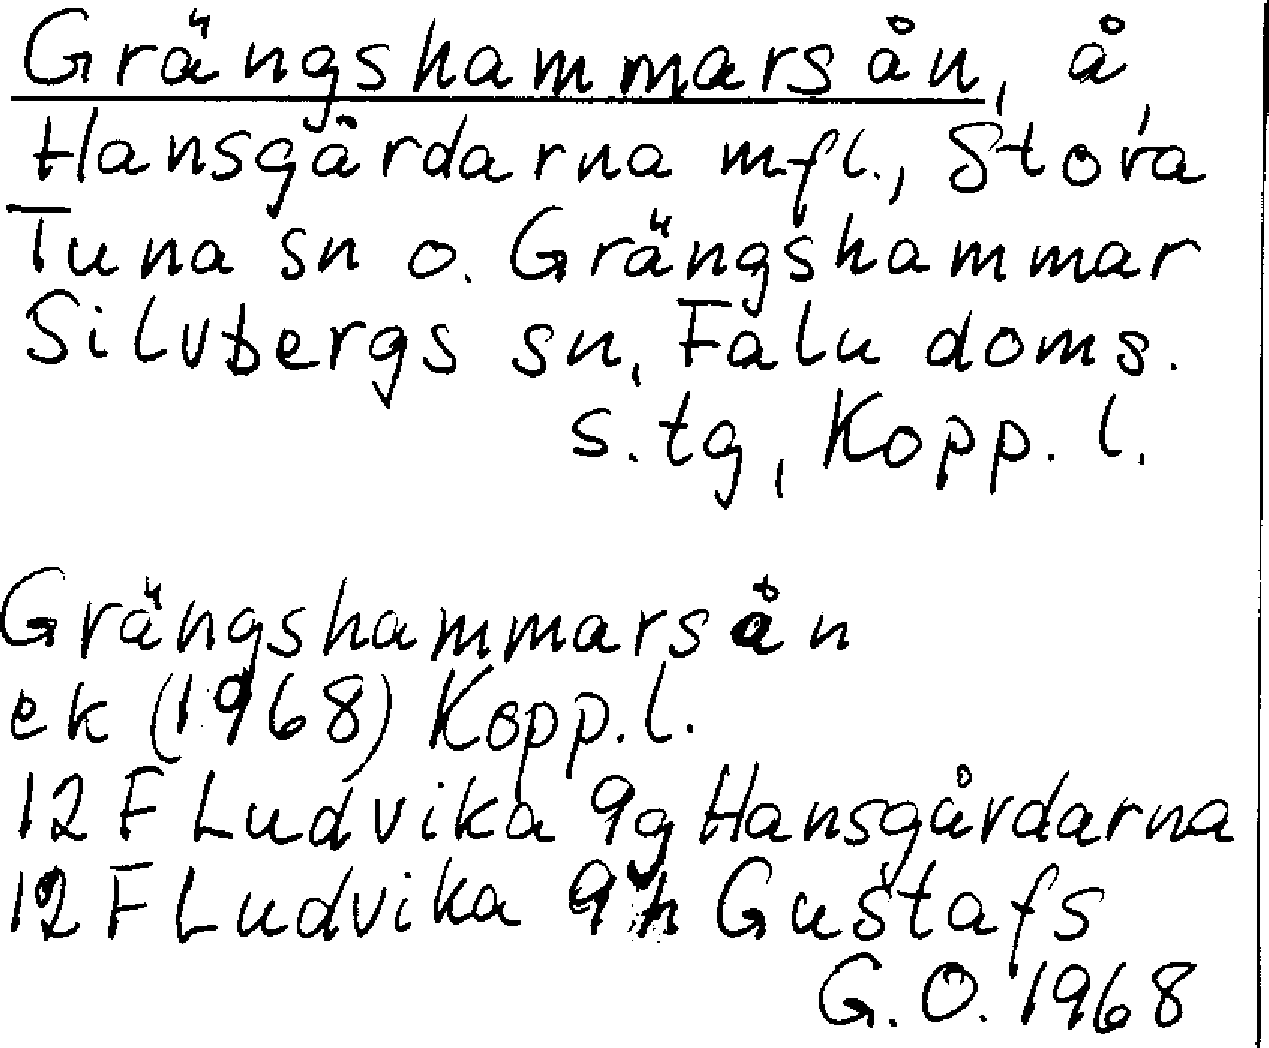 Grängshammarsån, å,
Hansgårdarna mfl., Stora
Tuna sn o. Grängshammar
Silvbergs sn, Falu doms.
s.tg, Kopp. l.
Grängshammarsån
ek (1968) Kopp.l.
12 F Ludvika 9g Hansgårdarna
12 F Ludvika 9h Gustafs
G.O. 1968